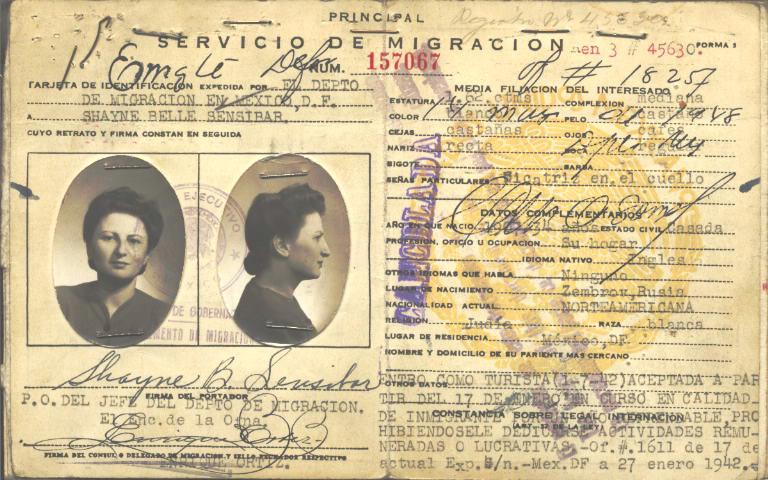 PRINCIPAL
SERVICIO DE MIGRACION
FORMA 3
NUM. 157067
en 3 # 45630
# 18257
TARJETA DE IDENTIFICACION EXPEDIDA POR EL DEPTO
DE MIGRACION EN MEXICO, D.F.
A SHAYNE BELLE SENSIBAR.
CUYO RETRATO Y FIRMA CONSTAN EN SEGUIDA
EJECUTIVO
DE GOBERN
MENTO DE MIGRACI
Shayne B. Sensibar
FIRMA DEL PORTADOR
P.O. DEL JEFE DEL DEPTO DE MIGRACION.
El Enc. de la Ofna.
ENRIQUE ORTIZ.
FIRMA DEL CONSUL O DELEGADO DE MIGRACION, Y SELLO FECHADOR RESPECTIVO
MEDIA FILIACION DEL INTERESADO
ESTATURA ctms COMPLEXION mediana
COLOR PELO
CEJAS castañas OJOS cafes
NARIZ recta
BIGOTE BARBA
SEÑAS PARTICULARES Sicatriz en el cuello
CANCELADA
DATOS COMPLEMENTARIOS
AÑO EN QUE NACIO años ESTADO CIVIL Casada
PROFESION, OFICIO U OCUPACION Su hogar
IDIOMA NATIVO Ingles
OTROS IDIOMAS QUE HABLA Ninguno
LUGAR DE NACIMIENTO Zembrov, Rusia
NACIONALIDAD ACTUAL NORTEAMERICANA
RELIGION Judía RAZA blanca
LUGAR DE RESIDENCIA México, DF
NOMBRE Y DOMICILIO DE SU PARIENTE MAS CERCANO
OTROS DATOS
ENTRO COMO TURISTA(1-7-42)ACEPTADA A PAR
TIR DEL 17 DE ENERO EN CURSO EN CALIDAD
CONSTANCIA SOBRE LEGAL INTERNACION
DE INMIGRANTE
(ART. 57 DE LA LEY)
HIBIENDOSELE DEDICARSE ACTIVIDADES REMU-
NERADAS O LUCRATIVAS.-Of.#.1611 de 17 de
actual Exp.S/n.-Mex.DF a 27 enero 1942.